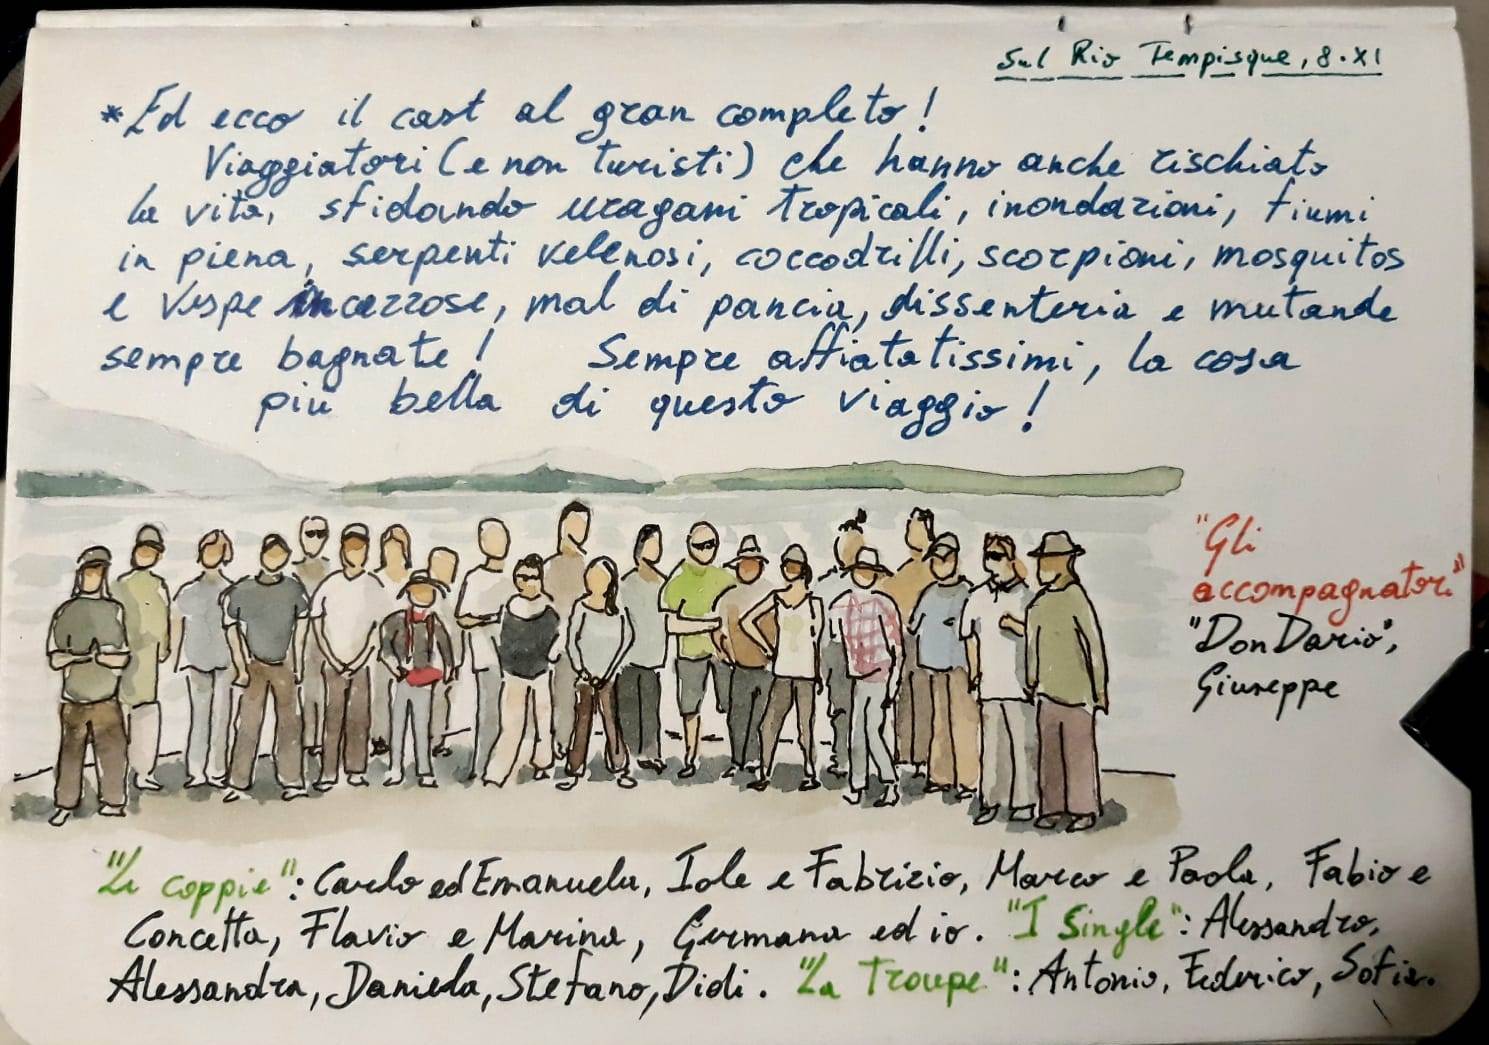 Sul Rio Tempisque, 8.XI
*Ed ecco il cast al gran completo!
Viaggiatori (e non turisti) che hanno anche rischiato
la vita, sfidando uragani tropicali, inondazioni, fiumi
in piena, serpenti velenosi, coccodrilli, scorpioni, mosquitos
e vespe incazzose, mal di pancia, dissenteria e mutande
sempre bagnate! Sempre affiatatissimi, la cosa
più bella di questo viaggio!
"Gli
accompagnatori"
"Don Dario",
Giuseppe
"Le coppie": Carlo ed Emanuela, Iole e Fabrizio, Marco e Paola, Fabio e
Concetta, Flavio e Marina, Germana ed io. "I Single": Alessandro,
Alessandra, Daniela, Stefano, Didi. "La Troupe": Antonio, Federico, Sofia.